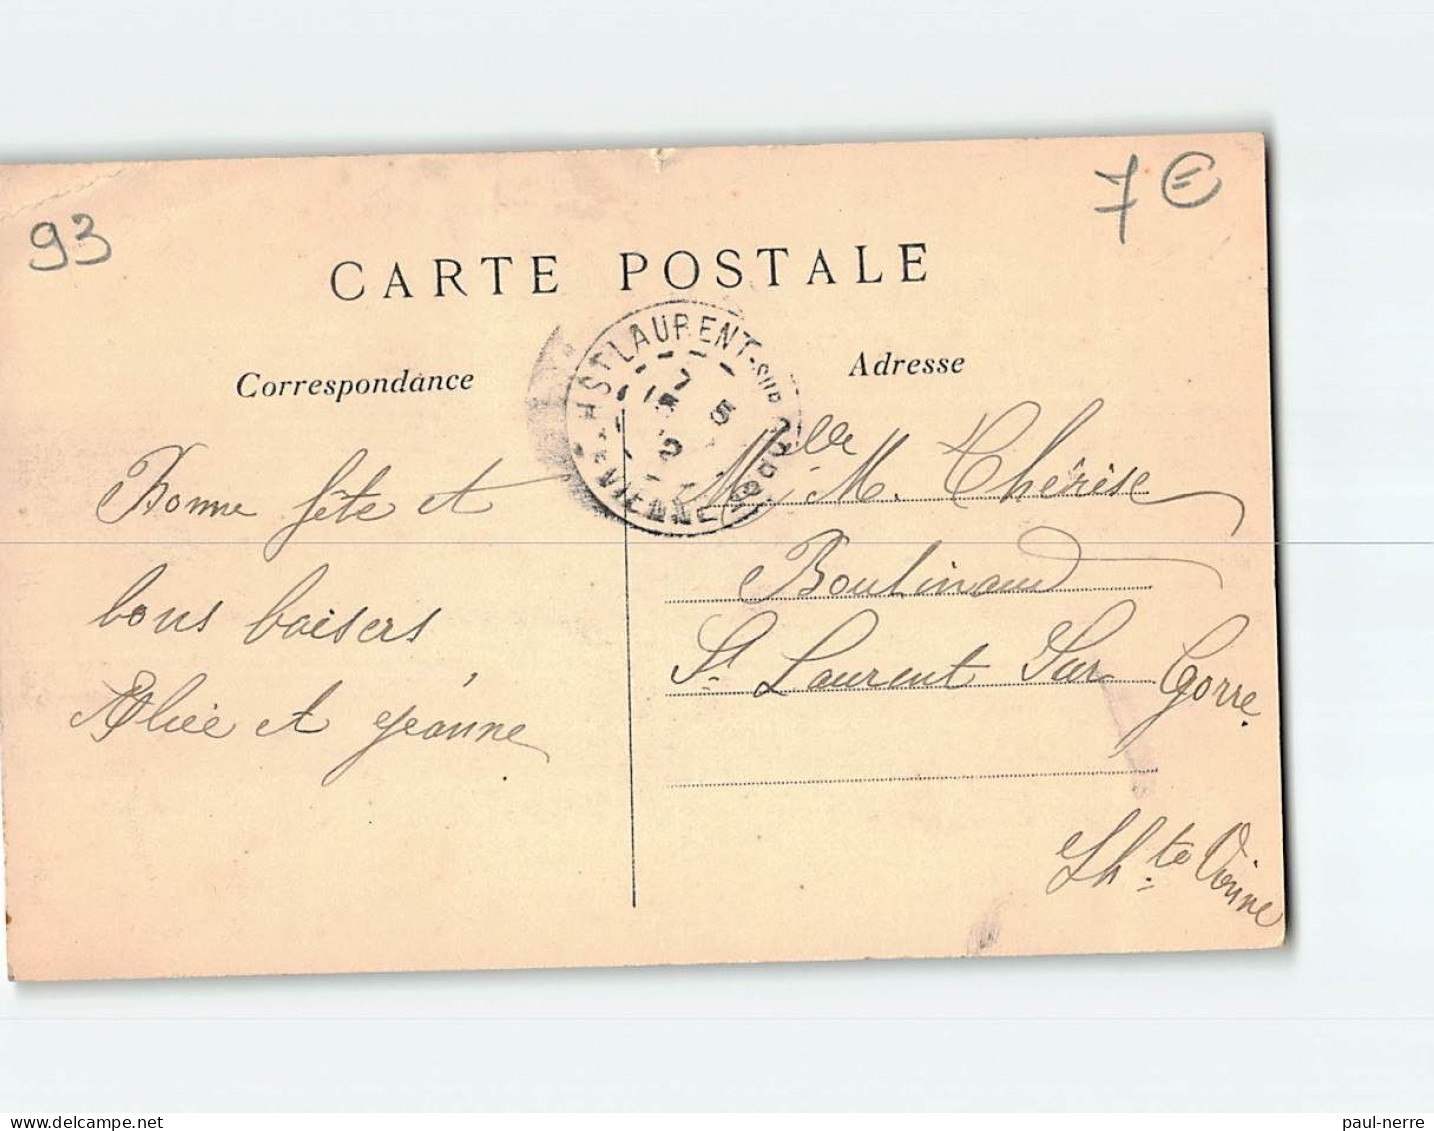 93
7 €
CARTE POSTALE
Correspondance
Adresse
ST LAURENT-SUR-GORRE
HTE VIENNE
7 5
Bonne fête et
bons baisers
Alice et Jeanne
Melle M. Thérèse
Boulinaud
St Laurent Sur Gorre.
Hte Vienne
paul-nerre